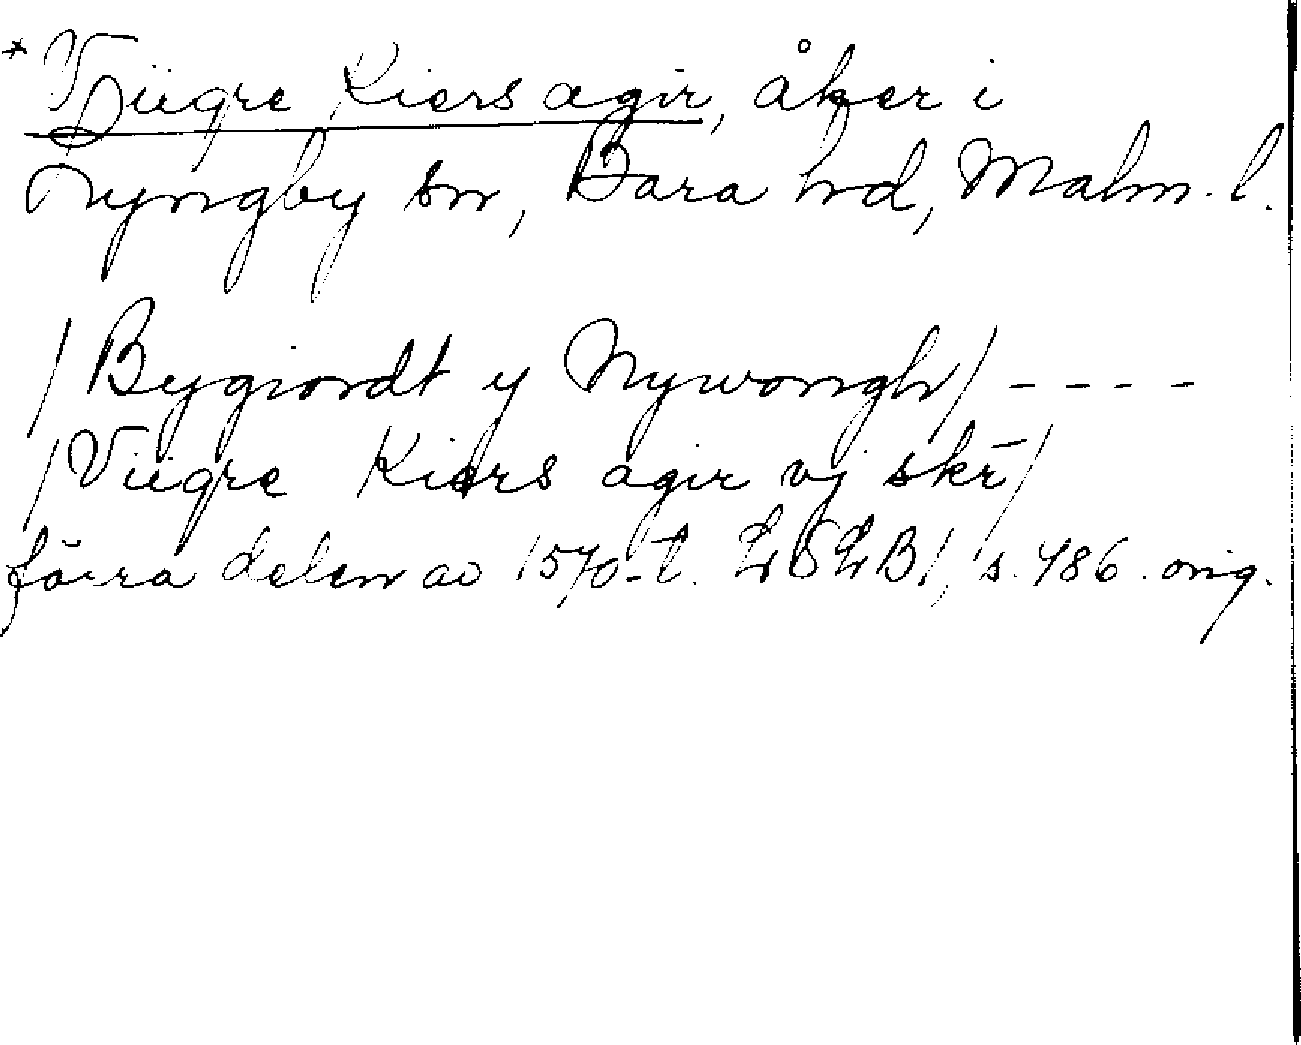 * Viigre Kiers agir, åker i
Lyngby sn, Bara hd, Malm. l.
/Bygiordt y Nywongh/ - - - -
/Viigre Kiers agir vj skr̄/
förra delen av 1570-t. LSLB1, s. 486. orig.